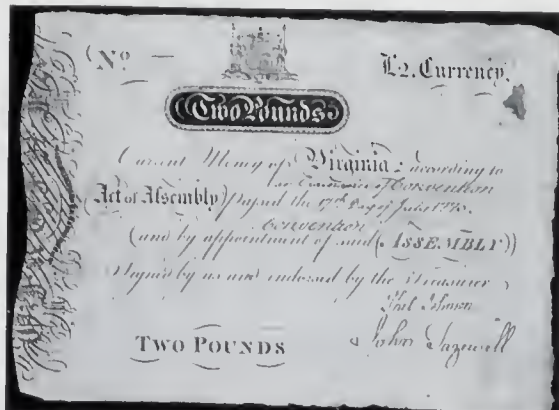 (No — £2. Currency.
Two Pounds
Current Money of Virginia; according to
Convention
(Act of Assembly) Passed the 17th Day of July 1775.
Convention
(and by appointment of said (ASSEMBLY))
Signed by us and endorsed by the Treasurer,
Phil Johnson
TWO POUNDS John Tazewell